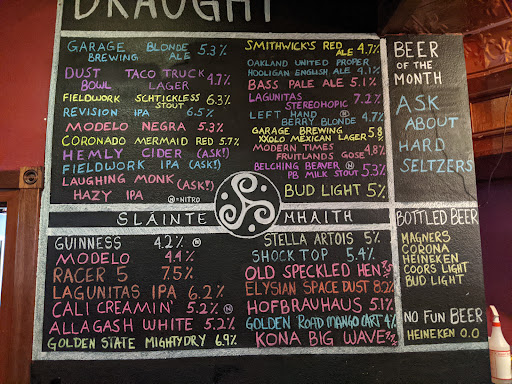 DRAUGHT
GARAGE BLONDE 5.3%
BREWING ALE
DUST TACO TRUCK 4.7%
BOWL LAGER
FIELDWORK SCHTICKLESS 6.3%
STOUT
REVISION IPA 6.5%
MODELO NEGRA 5.3%
CORONADO MERMAID RED 5.7%
HEMLY CIDER (ASK!)
FIELDWORK IPA (ASK!)
LAUGHING MONK (ASK!)
HAZY IPA
Ⓝ=NITRO
SMITHWICK'S RED 4.7%
ALE
OAKLAND UNITED PROPER
HOOLIGAN ENGLISH ALE 4.1%
BASS PALE ALE 5.1%
LAGUNITAS 7.2%
STEREOHOPIC
LEFT HAND Ⓝ 4.7%
BERRY BLONDE
GARAGE BREWING 5.8
XXOLO MEXICAN LAGER
MODERN TIMES 4.8%
FRUITLANDS GOSE
BELCHING BEAVER Ⓝ
PB MILK STOUT 5.3%
BUD LIGHT 5%
BEER
OF THE
MONTH
ASK
ABOUT
HARD
SELTZERS
SLÁINTE MHAITH
GUINNESS 4.2% Ⓝ
MODELO 4.4%
RACER 5 7.5%
LAGUNITAS IPA 6.2%
CALI CREAMIN' 5.2% Ⓝ
ALLAGASH WHITE 5.2%
GOLDEN STATE MIGHTY DRY 6.9%
STELLA ARTOIS 5%
SHOCK TOP 5.4%
OLD SPECKLED HEN
ELYSIAN SPACE DUST 8.2%
HOFBRAUHAUS 5.1%
GOLDEN ROAD MANGO CART 4%
KONA BIG WAVE
BOTTLED BEER
MAGNERS
CORONA
HEINEKEN
COORS LIGHT
BUD LIGHT
NO FUN BEER
HEINEKEN 0.0